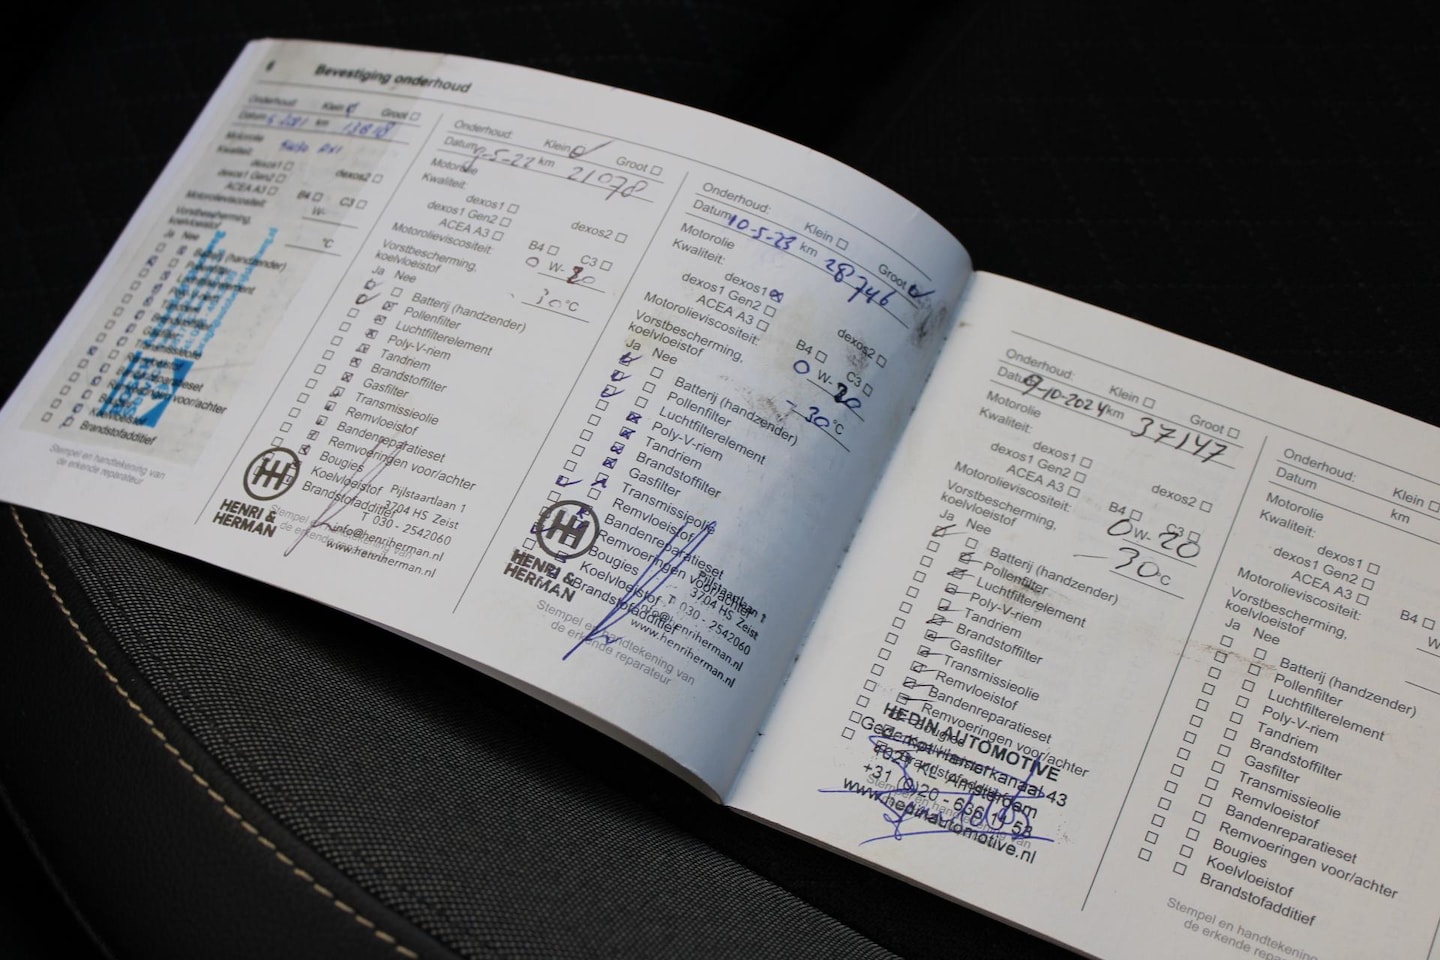 6 Bevestiging onderhoud
Onderhoud: Klein Groot
Datum km
Motorolie
Kwaliteit:
dexos1
dexos1 Gen2 dexos2
ACEA A3 B4 C3
Motorolieviscositeit: W-
Vorstbescherming, °C
koelvloeistof
Ja Nee
Batterij (handzender)
Brandstofadditief
Stempel en handtekening van
de erkende reparateur
Onderhoud: Klein Groot
Datum 9-5-22 km 21078
Motorolie
Kwaliteit:
dexos1
dexos1 Gen2 dexos2
ACEA A3 B4 C3
Motorolieviscositeit: 0 W-20
Vorstbescherming, 30 °C
koelvloeistof
Ja Nee
Batterij (handzender)
Pollenfilter
Luchtfilterelement
Poly-V-riem
Tandriem
Brandstoffilter
Gasfilter
Transmissieolie
Remvloeistof
Bandenreparatieset
Remvoeringen voor/achter
Bougies
Koelvloeistof
Brandstofadditief
Stempel en handtekening van
de erkende reparateur
HENRI &
HERMAN
Pijlstaartlaan 1
3704 HS Zeist
T 030 - 2542060
info@henriherman.nl
www.henriherman.nl
Onderhoud: Klein Groot
Datum 10-5-23 km 28746
Motorolie
Kwaliteit:
dexos1
dexos1 Gen2 dexos2
ACEA A3 B4 C3
Motorolieviscositeit: 0 W-20
Vorstbescherming, -30 °C
koelvloeistof
Ja Nee
Batterij (handzender)
Pollenfilter
Luchtfilterelement
Poly-V-riem
Tandriem
Brandstoffilter
Gasfilter
Transmissieolie
Remvloeistof
Bandenreparatieset
Remvoeringen voor/achter
Bougies
Koelvloeistof
Brandstofadditief
Stempel en handtekening van
de erkende reparateur
HENRI &
HERMAN
Pijlstaartlaan 1
3704 HS Zeist
T 030 - 2542060
info@henriherman.nl
www.henriherman.nl
Onderhoud: Klein Groot
Datum 9-10-2024 km 37147
Motorolie
Kwaliteit:
dexos1
dexos1 Gen2 dexos2
ACEA A3 B4 C3
Motorolieviscositeit: 0 W-20
Vorstbescherming, -30 °C
koelvloeistof
Ja Nee
Batterij (handzender)
Pollenfilter
Luchtfilterelement
Poly-V-riem
Tandriem
Brandstoffilter
Gasfilter
Transmissieolie
Remvloeistof
Bandenreparatieset
Remvoeringen voor/achter
Bougies
Brandstofadditief
HEDIN AUTOMOTIVE
43
Amsterdam
+31 (0)20 - 636 14 58
www.hedinautomotive.nl
Onderhoud: Klein
Datum km
Motorolie
Kwaliteit:
dexos1
dexos1 Gen2
ACEA A3 B4
Motorolieviscositeit: W
Vorstbescherming,
koelvloeistof
Ja Nee
Batterij (handzender)
Pollenfilter
Luchtfilterelement
Poly-V-riem
Tandriem
Brandstoffilter
Gasfilter
Transmissieolie
Remvloeistof
Bandenreparatieset
Remvoeringen voor/achter
Bougies
Koelvloeistof
Brandstofadditief
Stempel en handtekening
de erkende